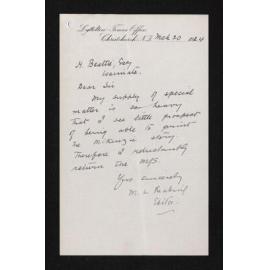 Lyttelton Times Office
Christchurch, N.Z. Mch 20 1924
H Beattie, Esq
Waimate.
Dear Sir
My supply of special
matter is so heavy
that I see little prospect
of being able to print
the McKenzie story
Therefore I reluctantly
return the MSS.
Yrs sincerely
M. L.
Editor.